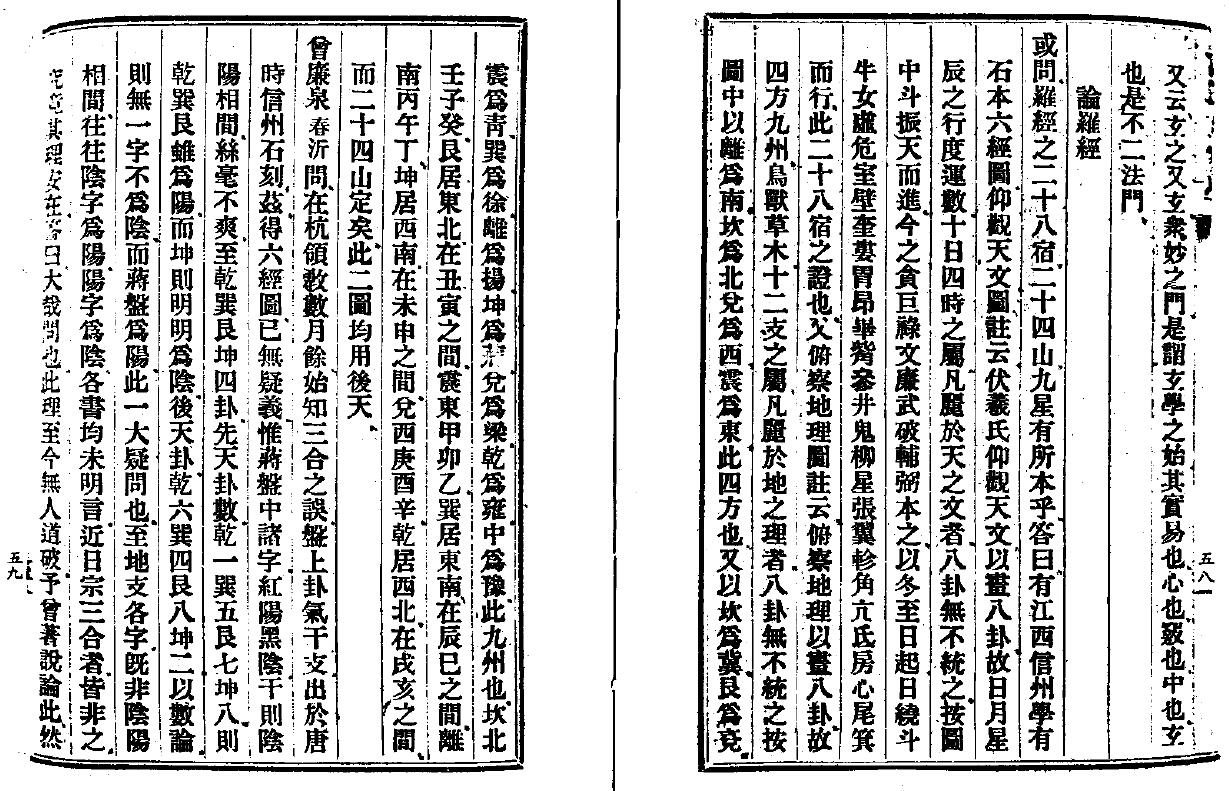 又云玄之又玄衆妙之門是謂玄學之始其實易也心也竅也中也玄
也是不二法門
論羅經
或問羅經之二十八宿二十四山九星有所本乎答曰有江西信州學有
石本六經圖仰觀天文圖註云伏羲氏仰觀天文以畫八卦故日月星
辰之行度運數十日四時之屬凡麗於天之文者八卦無不統之按圖
中斗振天而進今之貪巨祿文廉武破輔弼本之以冬至日起日繞斗
牛女虛危室壁奎婁胃昴畢觜參井鬼柳星張翼軫角亢氐房心尾箕
而行此二十八宿之證也又俯察地理圖註云俯察地理以畫八卦故
四方九州鳥獸草木十二支之屬凡麗於地之理者八卦無不統之按
圖中以離爲南坎爲北兌爲西震爲東此四方也又以坎爲冀艮爲兗
震爲青巽爲徐離爲揚坤爲荆兌爲梁乾爲雍中爲豫此九州也坎北
壬子癸艮居東北在丑寅之間震東甲卯乙巽居東南在辰巳之間離
南丙午丁坤居西南在未申之間兌西庚酉辛乾居西北在戌亥之間
而二十四山定矣此二圖均用後天
曾廉泉春沂問在杭領敎數月餘始知三合之誤盤上卦氣干支出於唐
時信州石刻茲得六經圖已無疑義惟蔣盤中諸字紅陽黑陰干則陰
陽相間絲毫不爽至乾巽艮坤四卦先天卦數乾一巽五艮七坤八則
乾巽艮雖爲陽而坤則明明爲陰後天卦乾六巽四艮八坤二以數論
則無一字不爲陰而蔣盤爲陽此一大疑問也至地支各字旣非陰陽
相間往往陰字爲陽陽字爲陰各書均未明言近日宗三合者皆非之
究竟其理安在答曰大哉問也此理至今無人道破予曾著說論此然
五八
五九